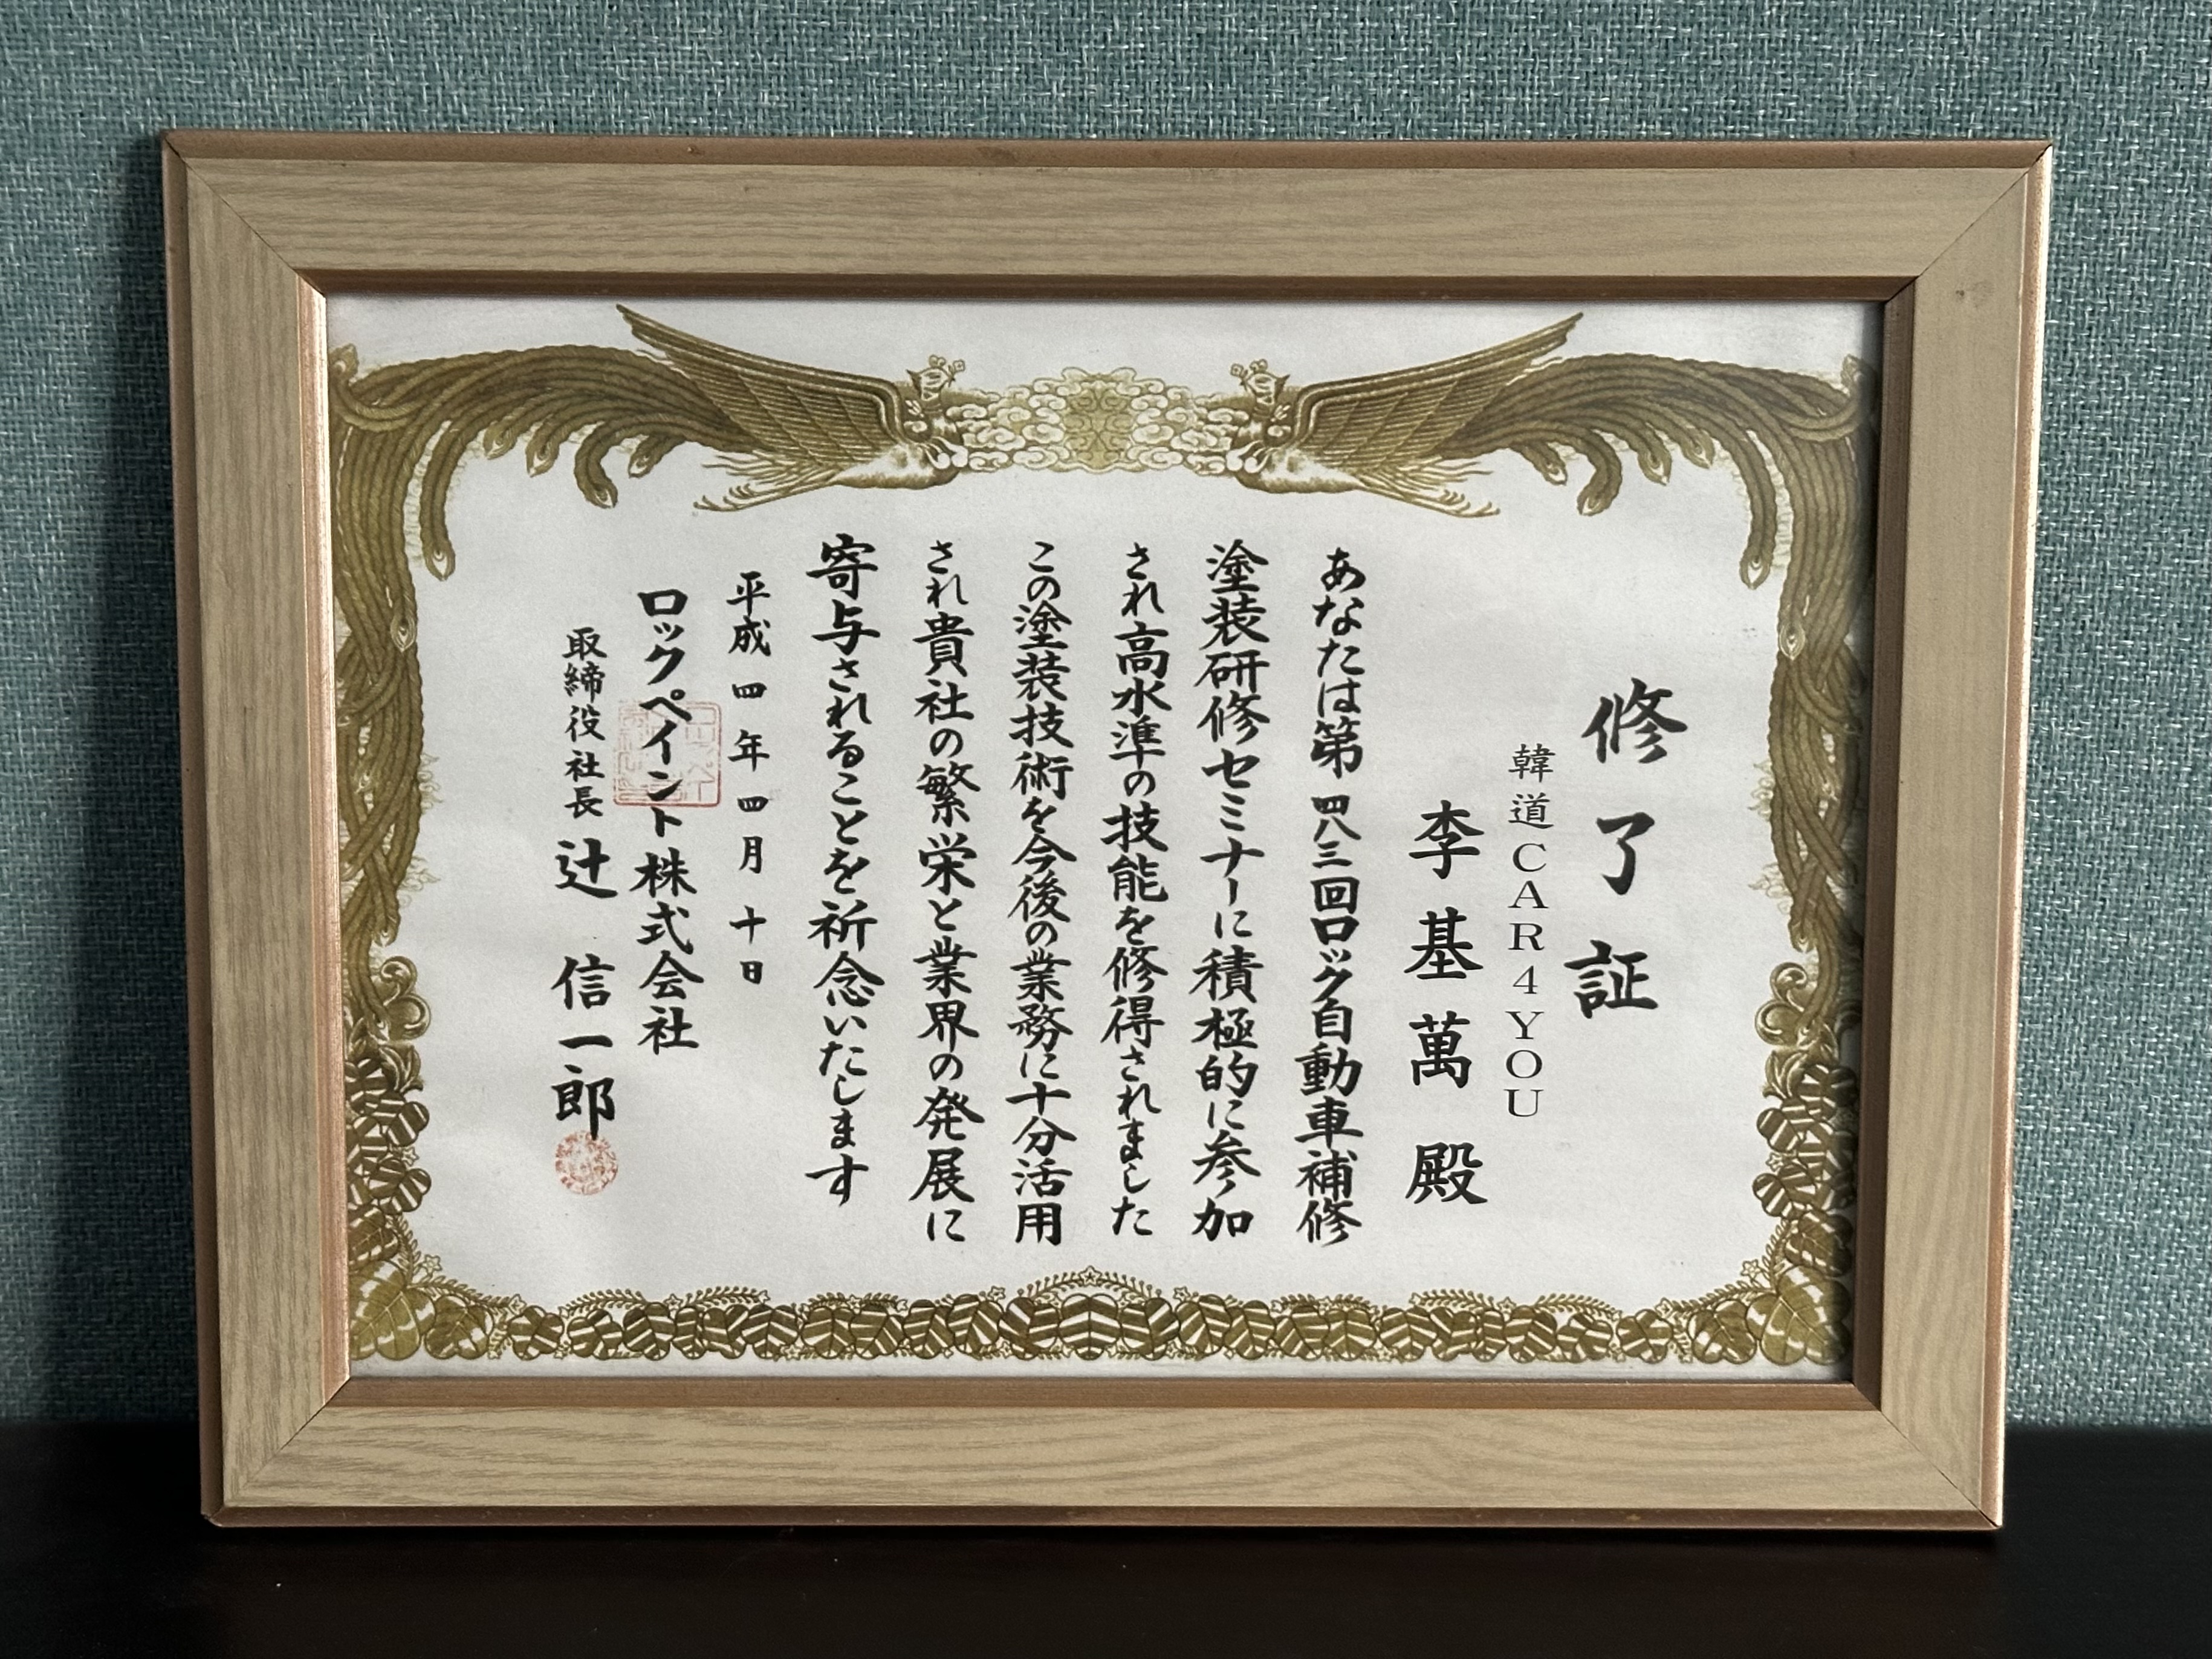 修了証
韓道CAR4YOU
李基萬殿
あなたは第四八三回ロック自動車補修
塗装研修セミナーに積極的に参加
され高水準の技能を修得されました
この塗装技術を今後の業務に十分活用
され貴社の繁栄と業界の発展に
寄与されることを祈念いたします
平成四年四月十日
ロックペイント株式会社
取締役社長 辻 信一郎